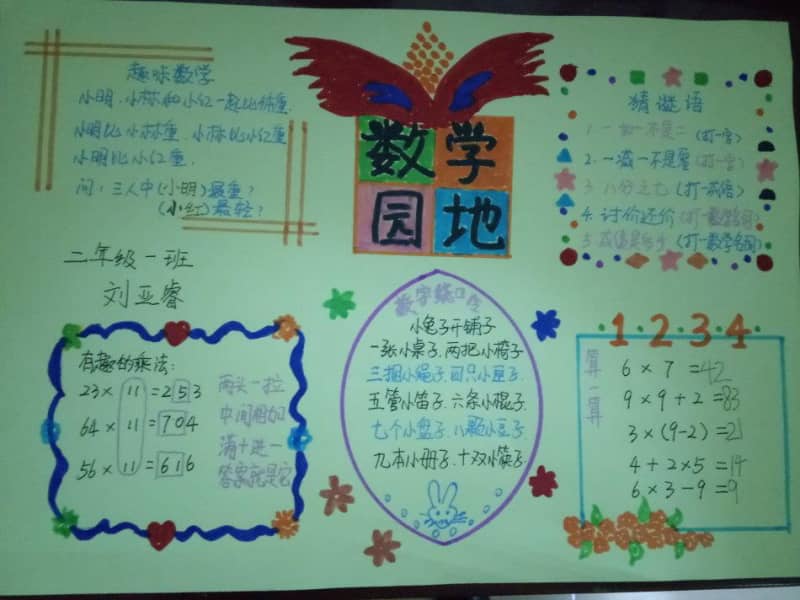 趣味数学
小明、小林和小红一起比体重
小明比小林重、小林比小红重
小明比小红重.
问:三人中(小明)最重?
(小红)最轻?
数学
园地
猜谜语
1. 一加一不是二(打一字)
2. 一减一不是零(打一字)
3. 八分之七(打一成语)
4. 讨价还价(打一数学名词)
(打一数学名词)
二年级一班
刘亚睿
有趣的乘法:
23×11=253
64×11=704
56×11=616
两头一拉
中间相加
满十进一
答案就是它
数字绕口令
小兔子开铺子
一张小桌子.两把小椅子
三捆小绳子.四只小匣子.
五管小笛子.六条小棍子.
七个小盘子.八颗小豆子.
九本小册子.十双小筷子.
1·2·3·4
算一算
6×7=42
9×9+2=83
3×(9-2)=21
4+2×5=14
6×3-9=9